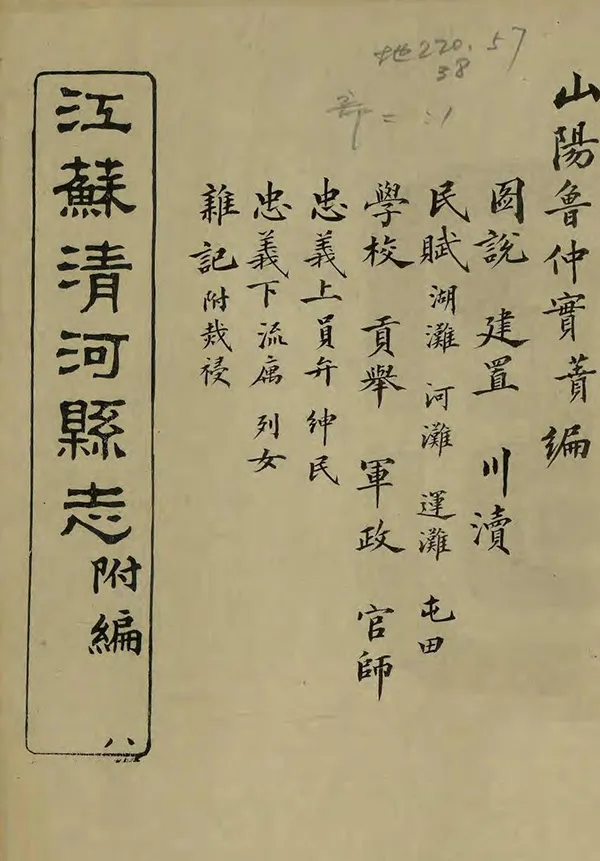 地220.57
38
山陽魯仲實蕢編
圖說 建置 川瀆
民賦 湖灘 河灘 運灘 屯田
學校 貢舉 軍政 官師
忠義上 員弁 紳民
忠義下 流寓 列女
雜記 附烖祲
江蘇清河縣志 附編
八